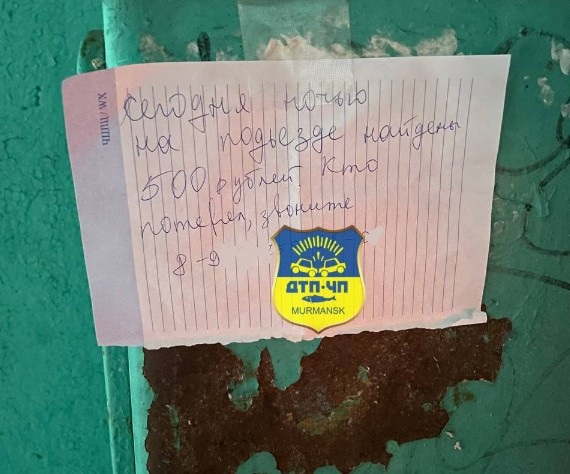 сегодня ночью
на подъезде найдены
500 рублей. Кто
потерял, звоните
8-9
ДТП·ЧП
MURMANSK